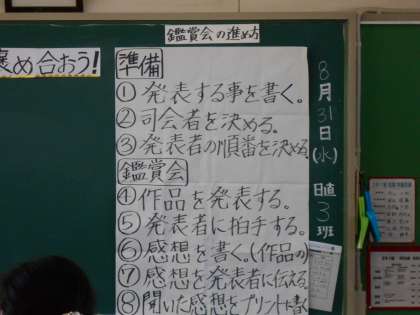 鑑賞会の進め方
褒め合おう!
準備
①発表する事を書く。
②司会者を決める。
③発表者の順番を決める
鑑賞会
④作品を発表する。
⑤発表者に拍手する。
⑥感想を書く。(作品の)
⑦感想を発表者に伝える。
⑧聞いた感想をプリントに書く
8月31日(水)
日直3班